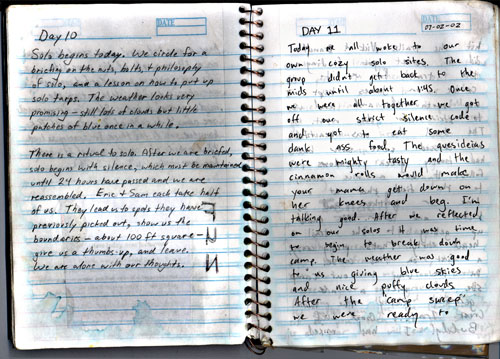 Day 10
DATE
Solo begins today. We circle for a
briefing on the nuts, bolts, & philosophy
of solo, and a lesson on how to put up
solo tarps. The weather looks very
promising - still lots of clouds but little
patches of blue once in a while.
There is a ritual to solo. After we are briefed,
solo begins with silence, which must be maintained
until 24 hours have passed and we are
reassembled. Eric & Sam each take half
of us. They lead us to spots they have
previously picked out, show us the
boundaries - about 100 ft square -
give us a thumbs up, and leave.
We are alone with our thoughts.
DAY 11
DATE
07-02-02
Today we all woke to our
own cozy solo sites. The
group didn't get back to the
mids until about 1:45. Once
we were all together we got
off our strict silence code
and got to eat some
dank ass food. The quesideias
were mighty tasty and the
cinnamon rolls would make
your mama get down on
her knees and beg. I'm
talking good. After we reflected
on our solos it was time
to begin to break down
camp. The weather was good
to us giving blue skies
and nice puffy clouds
After the "camp sweep"
we were ready to